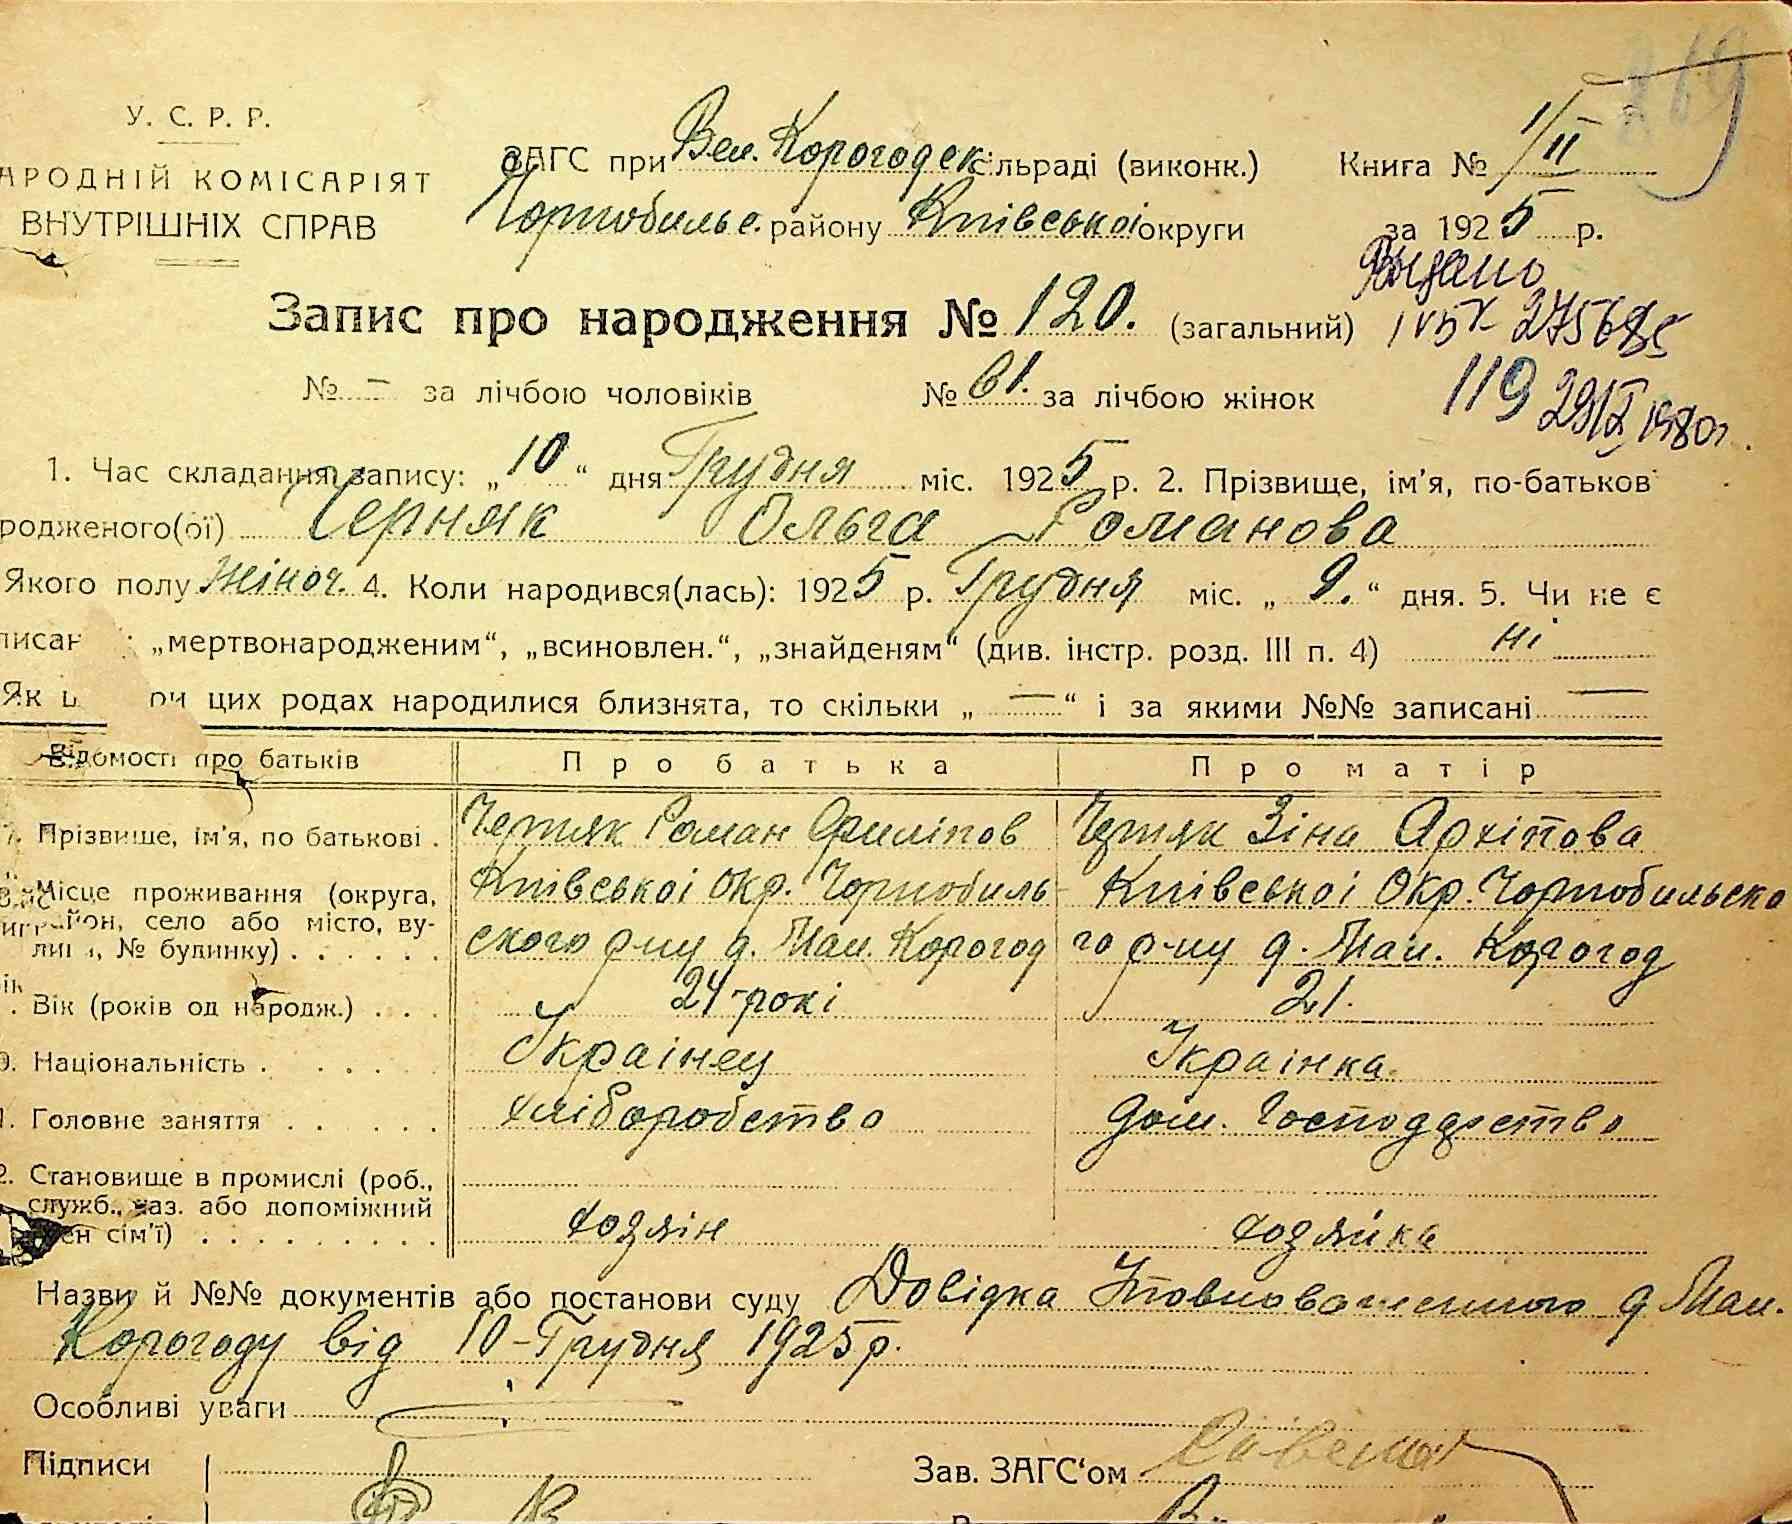 269
У. С. Р. Р.
АРОДНІЙ КОМІСАРІЯТ
ВНУТРІШНІХ СПРАВ
ЗАГС при Вел. Корогодск. сільраді (виконк.) Книга № 1/II
Чорнобильс. району Київськоі округи за 1925 р.
Видано
Запис про народження № 120. (загальний)
№ – за лічбою чоловіків № 61. за лічбою жінок
119 29/X 1980г.
1. Час складання запису: „10“ дня Грудня міс. 1925 р. 2. Прізвище, ім'я, по-батьков
родженого(ої) Черняк Ольга Романова
Якого полу Жіноч. 4. Коли народився(лась): 1925 р. Грудня міс. „9.“ дня. 5. Чи не є
писан „мертвонародженим“, „всиновлен.“, „знайденям“ (див. інстр. розд. III п. 4) ні
Як ри цих родах народилися близнята, то скільки „—“ і за якими №№ записані —
Відомості про батьків Про батька Про матір
7. Прізвище, ім'я, по батькові . Черняк Роман Филіпов Черняк Зіна Архіпова
Місце проживання (округа, Київськоі Окр. Чорнобиль- Київськоі Окр. Чорнобильско
район, село або місто, ву-
лиця, № будинку) . . . . . . ского р-ну д. Мал. Корогод го р-ну д. Мал. Корогод
. Вік (років од народж.) . . . 24-рокі 21.
0. Національність . . . . . Украінец Украінка.
1. Головне заняття . . . . . хліборобство Дом. Господарство
2. Становище в промислі (роб.,
служб., хаз. або допоміжний
член сім'ї) . . . . . . . . . хозяін хозяйка
Назви й №№ документів або постанови суду Довідка Уповноваженного д Мал.
Корогоду від 10-Грудня 1925р.
Особливі уваги
Підписи Зав. ЗАГС'ом